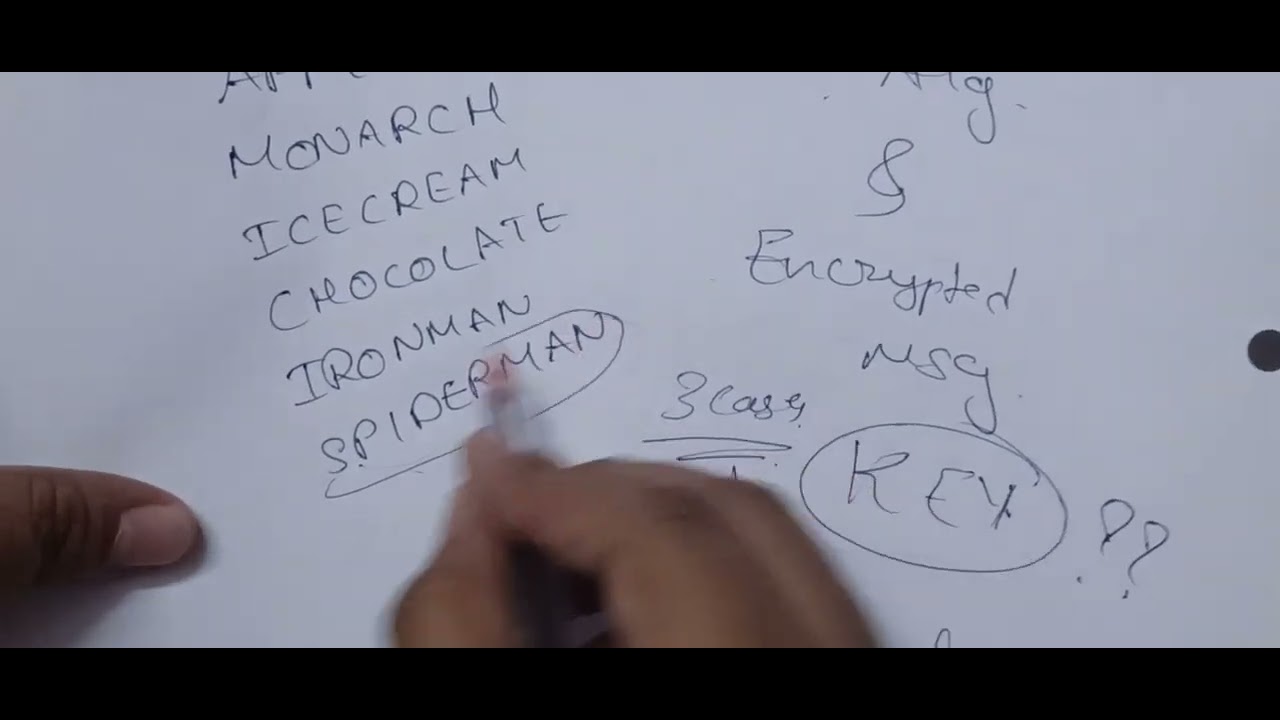 MONARCH
ICECREAM
CHOCOLATE
IRONMAN
SPIDERMAN
&
Encrypted
Msg
3 Case
KEY ??